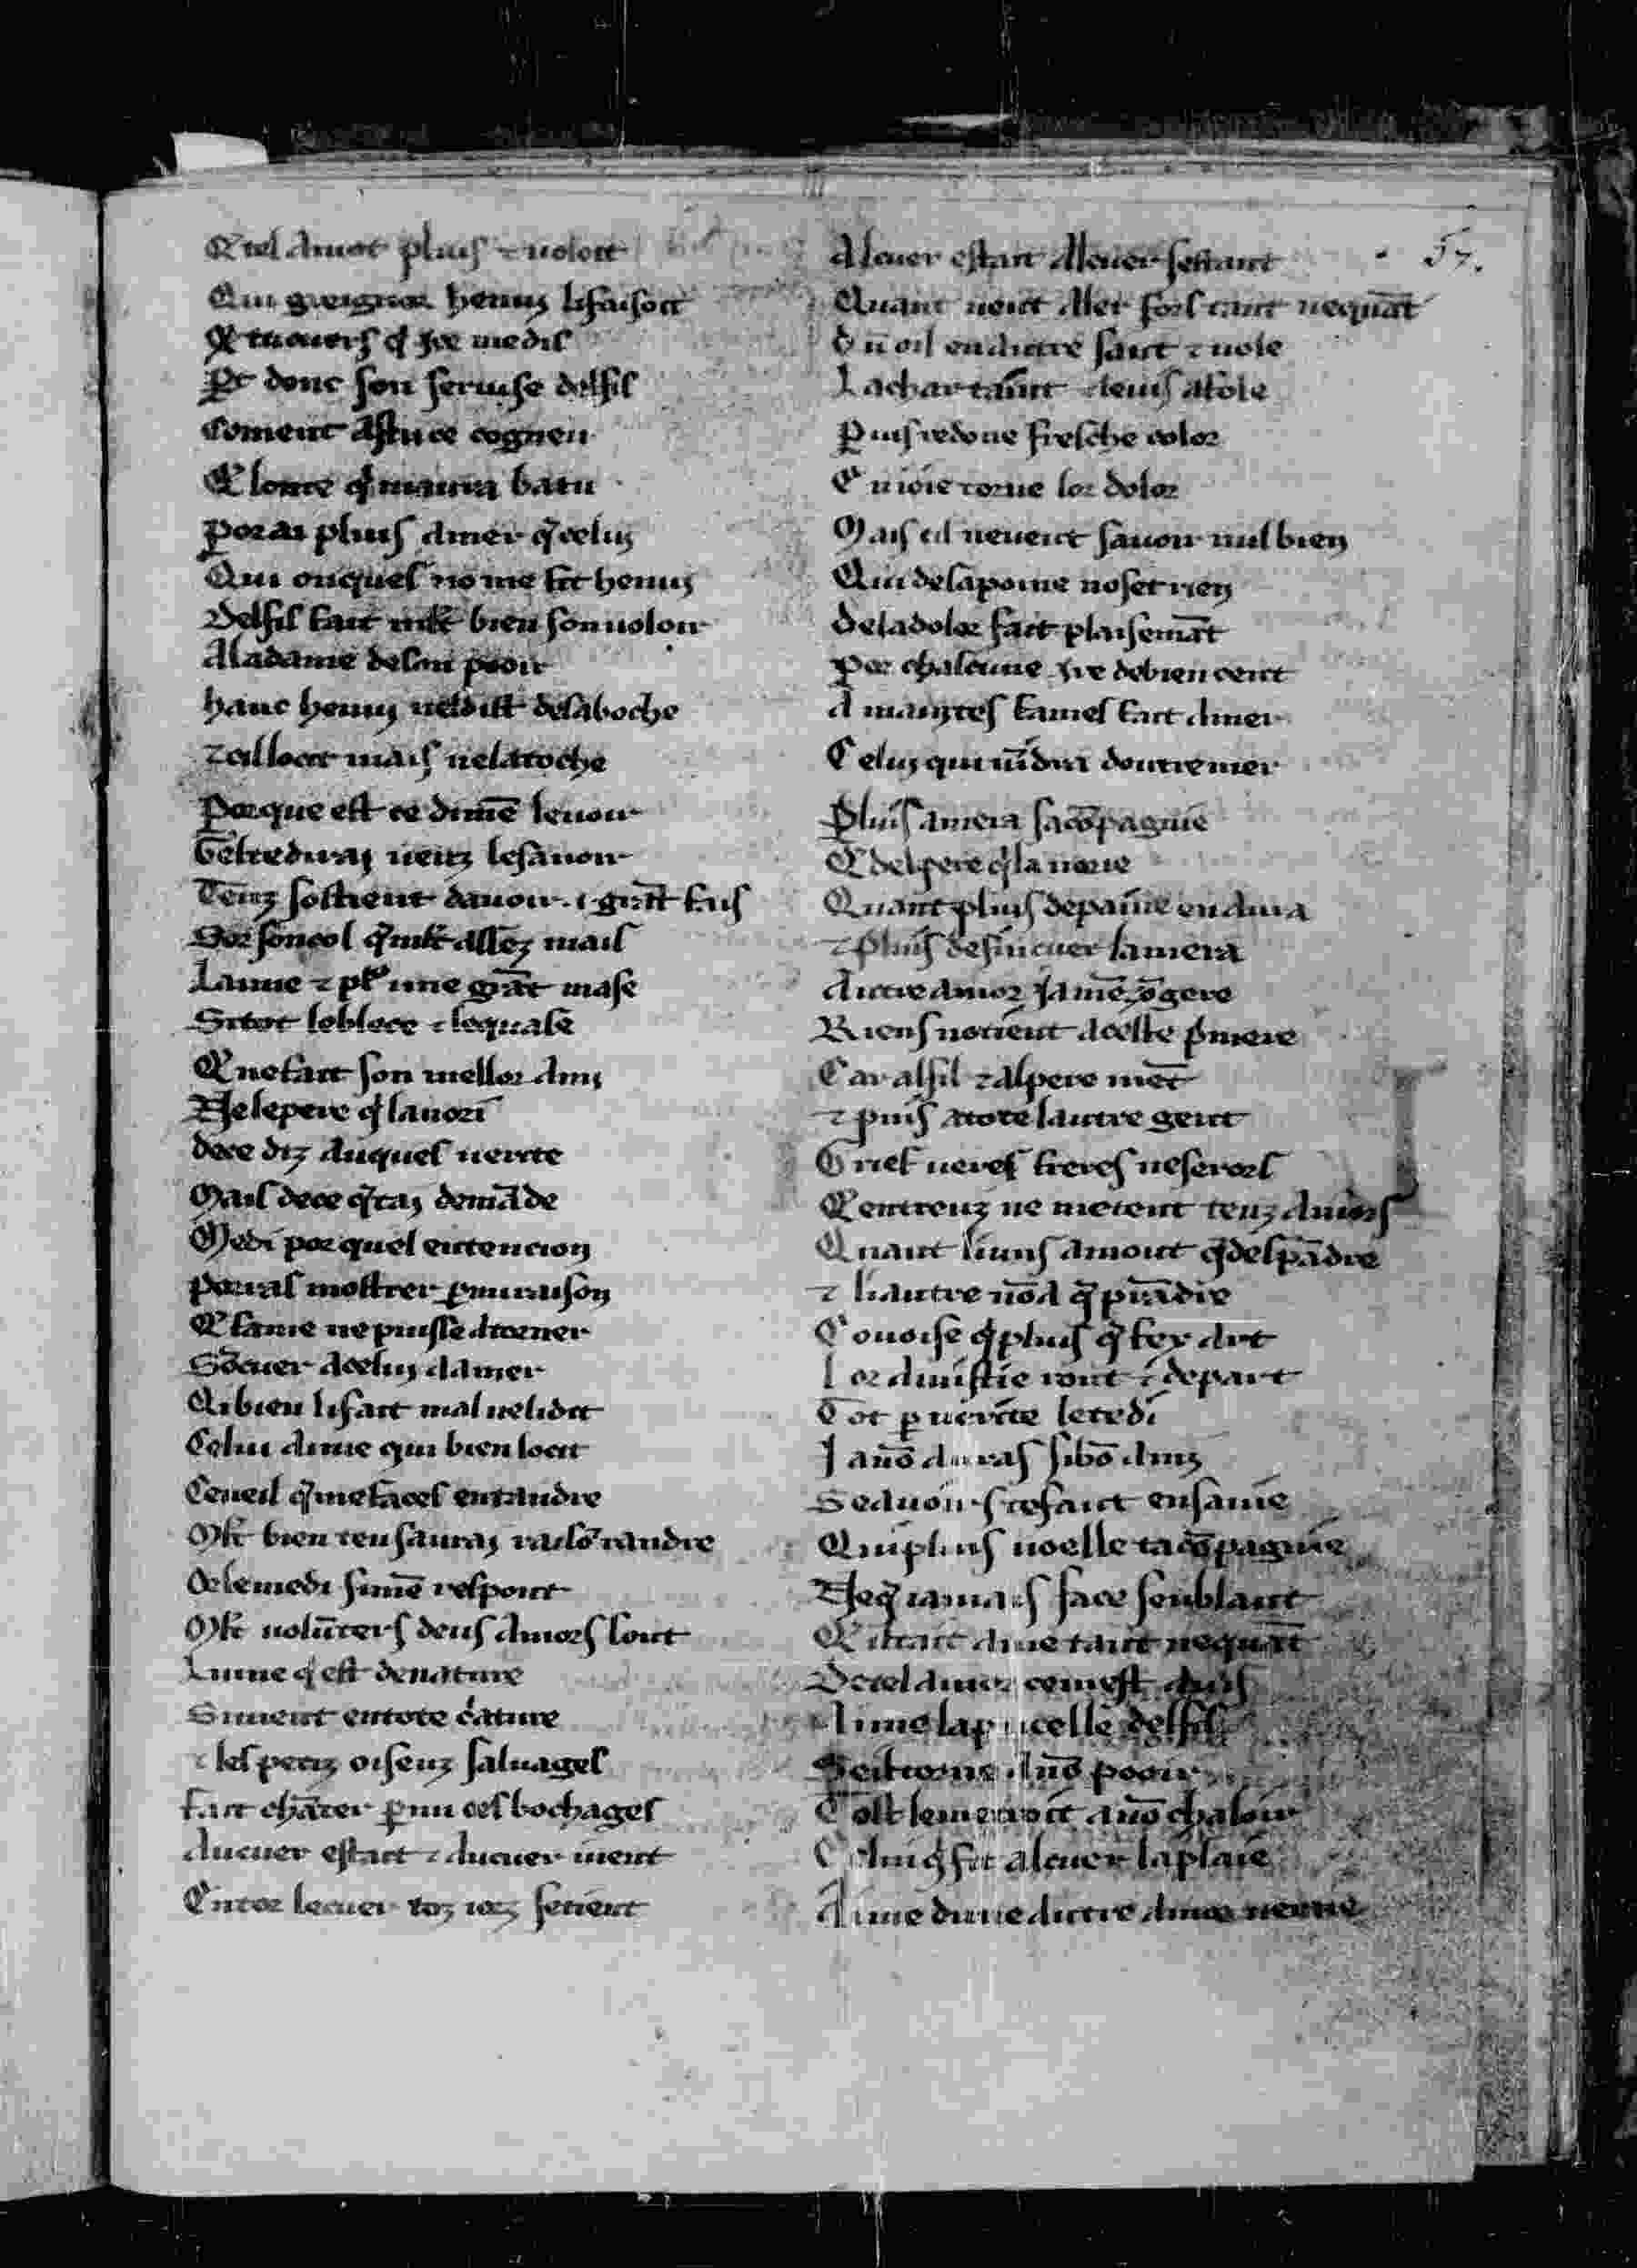 Q tel amot pluis ⁊ uoloit
Qui greignor henuy li faisoit
Q trouers q̄ ue medis
Et donc son seruise desfil
Coment as tu ce cogneu
Q lome q̄ maura batu
Porai pluis amer q̄ celuy
Qui onques no me fit henuy
Desfil fait mlt bien son uoloir
A la dame de son pooir
hanc henuy ne dist de sa boche
⁊ cil loet mais ne la toche
Por que est ce di men le uoir
Get rediray ueuz le sauoir
Tenz sostient dauoir ⁊ grāt fais
Sor son col q̄ mlt assez mais
Laime ⁊ pl' une grāt mase
Si tot le blece ⁊ le quase
Q ne fait son mellor amy
Ne le pere q̄ la nori
de ce diz auques uerite
Mais de ce q̄ tay demāde
Me di por quel entencion
Porras mostrer p mi raison
Q fame ne puisse atorner
Sō cuer a celuy damer
Qi bien li fait mal ne li dit
Celui aime qui bien loet
Ce ueil q̄ me faces entandre
Mlt bien ten sauray raisō randre
Or le me di si mē respont
Mlt uolūters deus amors sont
Lune q̄ est de nature
Si uient en tote c̄ature
⁊ les petiz oiseuz saluages
fait chāter p mi ces bochages
Au cuer estait ⁊ au cuer uient
Entor le cuer toz iorz se tient
Al cuer estait Al cuer sestant 57.
Quant ueut Aler fors tant ne quāt
d un oil en autre saut ⁊ uole
La char taint ⁊ leuis afole
Puis redone fresche color
En ioie torne lor dolor
Mais cil ne uent sauoir nul bien
Qui de la poine no set rien
De la dolor fait plaisemāt
Por chascune ire de bien cent
A maintes fames fait amer
Celuy qui uēdra doutre mer
Pluis amera sa cōpagnie
Q del pere q̄ la norie
Quant pluis de paine en aura
⁊ pluis de fin cuer lamera
Autre amor
Riens no tient a ceste p̄miere
Car al fil ⁊ al pere mēt
⁊ puis a tote lautre gent
G ries ueres freres ne serors
Q entreuz ne metent tenz amors
Quant li uns amont q̄ despādre
⁊ li autre nō a q̄ prādre
Couoise q̄ pluis q̄ fex art
Lor amistie ront ⁊ depart
Tot p uerite le te di
Ja nō auras si bō amy
Se auoirs te faut en sa uie
Qui pluis uoelle ta cōpagnie
Ne q̄ iamais face senblant
Q itait ame tant ne quāt
De tel amor ce mest auis
Aime la pucelle desfil
Se il torne a nō pooir
Tost le metroit a nō chaloir
Celui q̄ fit al cuer la plaie
Aime dune autre amor ueraie